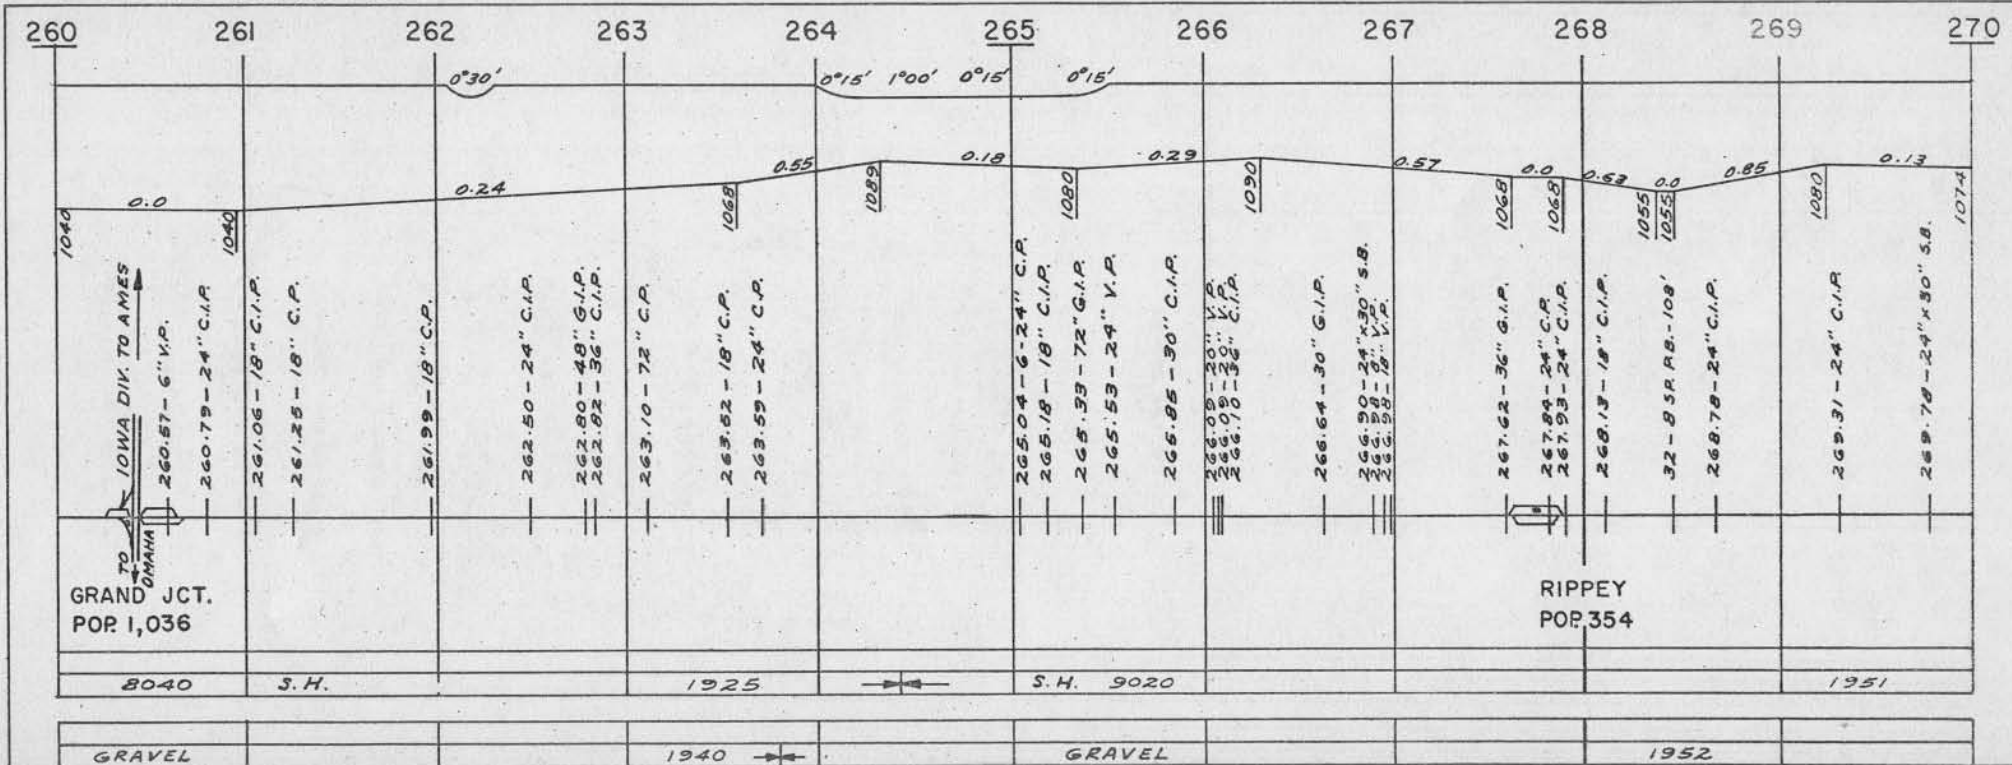 260 261 262 263 264 265 266 267 268 269 270
0°30' 0°15' 1°00' 0°15' 0°15'
0.0 0.24 0.55 0.18 0.29 0.57 0.0 0.63 0.0 0.85 0.13
1040 1040 1068 1089 1080 1090 1068 1068 1055 1055 1080 1074
IOWA DIV. TO AMES
TO OMAHA
260.57-6" V.P.
260.79-24" C.I.P.
261.06-18" C.I.P.
261.25-18" C.P.
261.99-18" C.P.
262.50-24" C.I.P.
262.80-48" G.I.P.
262.82-36" C.I.P.
263.10-72" C.P.
263.52-18" C.P.
263.59-24" C.P.
265.04-6-24" C.P.
265.18-18" C.I.P.
265.33-72" G.I.P.
265.53-24" V.P.
265.85-30" C.I.P.
266.09-20" V.P.
266.09-20" V.P.
266.10-36" C.I.P.
266.64-30" G.I.P.
266.90-24"x30" S.B.
266.98-8" V.P.
266.98-18" V.P.
267.62-36" G.I.P.
267.84-24" C.P.
267.93-24" C.I.P.
268.13-18" C.I.P.
32-8 SP. P.B.-108'
268.78-24" C.I.P.
269.31-24" C.I.P.
269.78-24"x30" S.B.
GRAND JCT.
POP. 1,036
RIPPEY
POP. 354
8040 S.H. 1925 S.H. 9020 1951
GRAVEL 1940 GRAVEL 1952